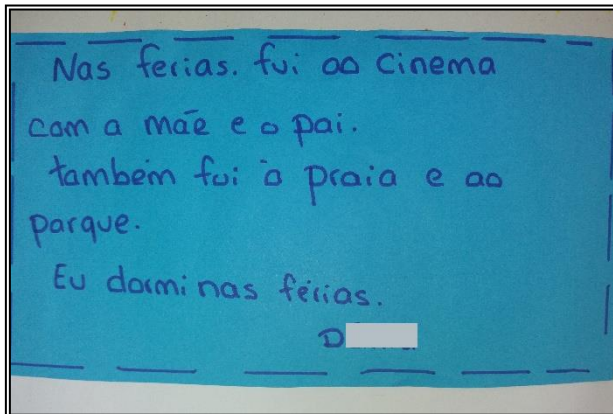 Nas ferias. fui ao cinema
com a mãe e o pai.
também fui à praia e ao
parque.
Eu dormi nas férias.
D